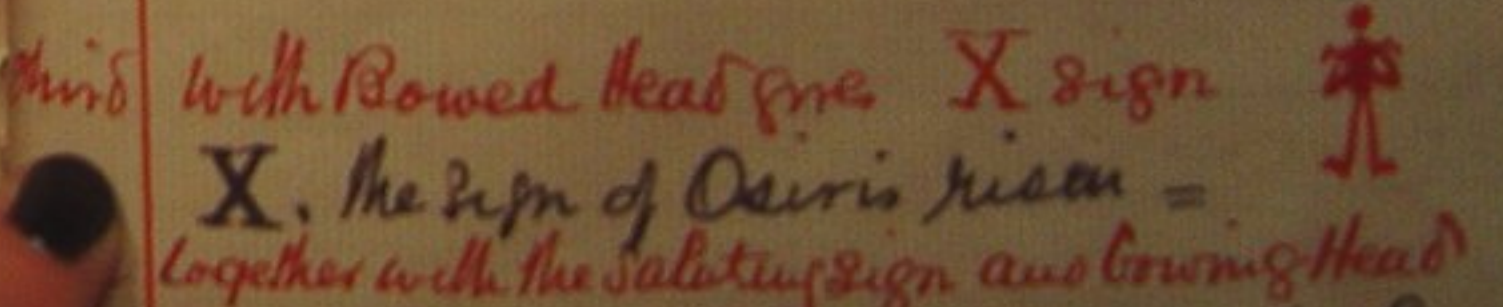 third with Bowed Head give X sign
X. The Sign of Osiris risen =
together with the saluting sign and bowing Head